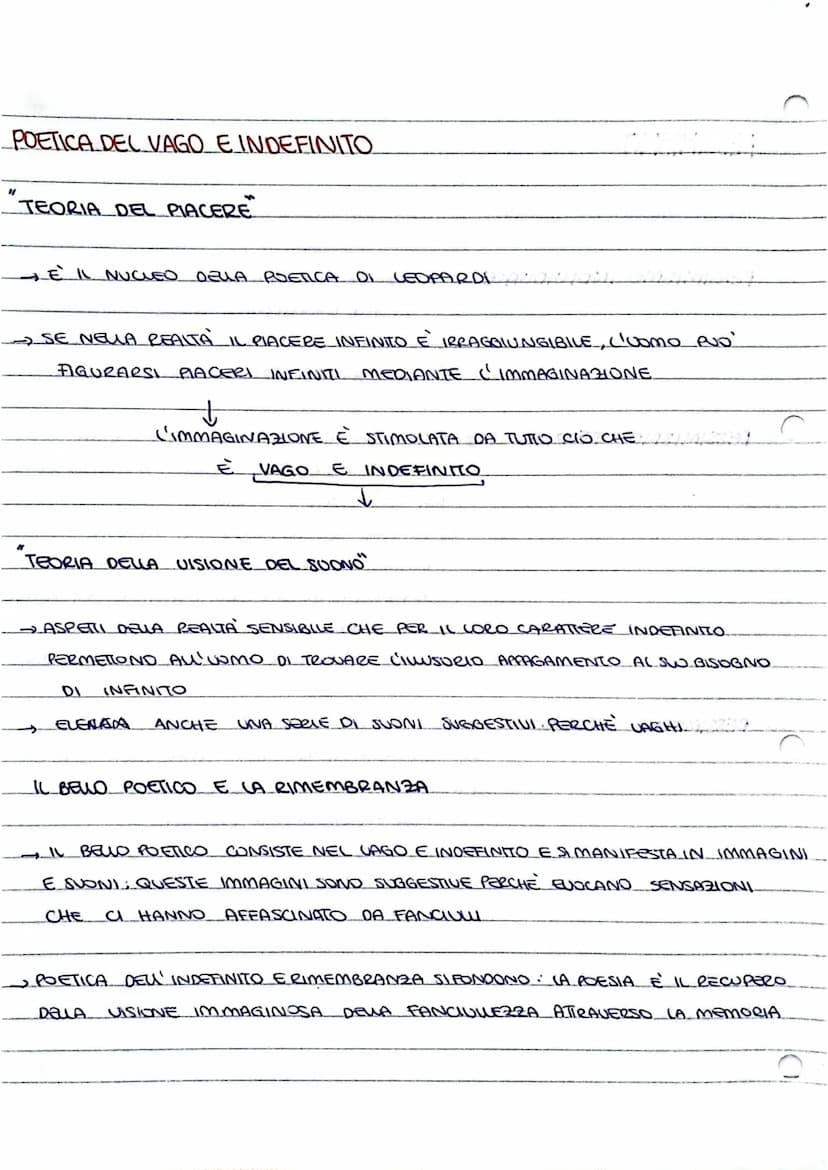 POETICA DEL VAGO E INDEFINITO
"TEORIA DEL PIACERE"
→ È IL NUCLEO DELLA POETICA DI LEOPARDI
→ SE NELLA REALTÀ IL PIACERE INFINITO È IRRAGGIUNGIBILE, L'UOMO PUO'
FIGURARSI PIACERI INFINITI MEDIANTE L'IMMAGINAZIONE
↓
L'IMMAGINAZIONE È STIMOLATA DA TUTTO CIÒ CHE
È VAGO E INDEFINITO
↓
"TEORIA DELLA VISIONE DEL SUONO"
→ ASPETTI DELLA REALTA' SENSIBILE CHE PER IL LORO CARATTERE INDEFINITO
PERMETTONO ALL'UOMO DI TROVARE L'ILLUSORIO APPAGAMENTO AL SUO BISOGNO
DI INFINITO
→ ELENCA ANCHE UNA SERIE DI SUONI SUGGESTIVI PERCHÈ VAGHI
IL BELLO POETICO E LA RIMEMBRANZA
→ IL BELLO POETICO CONSISTE NEL VAGO E INDEFINITO E SI MANIFESTA IN IMMAGINI
E SUONI; QUESTE IMMAGINI SONO SUGGESTIVE PERCHÈ EVOCANO SENSAZIONI
CHE CI HANNO AFFASCINATO DA FANCIULLI
→ POETICA DELL'INDEFINITO E RIMEMBRANZA SI FONDONO: LA POESIA È IL RECUPERO
DELLA VISIONE IMMAGINOSA DELLA FANCIULLEZZA ATTRAVERSO LA MEMORIA